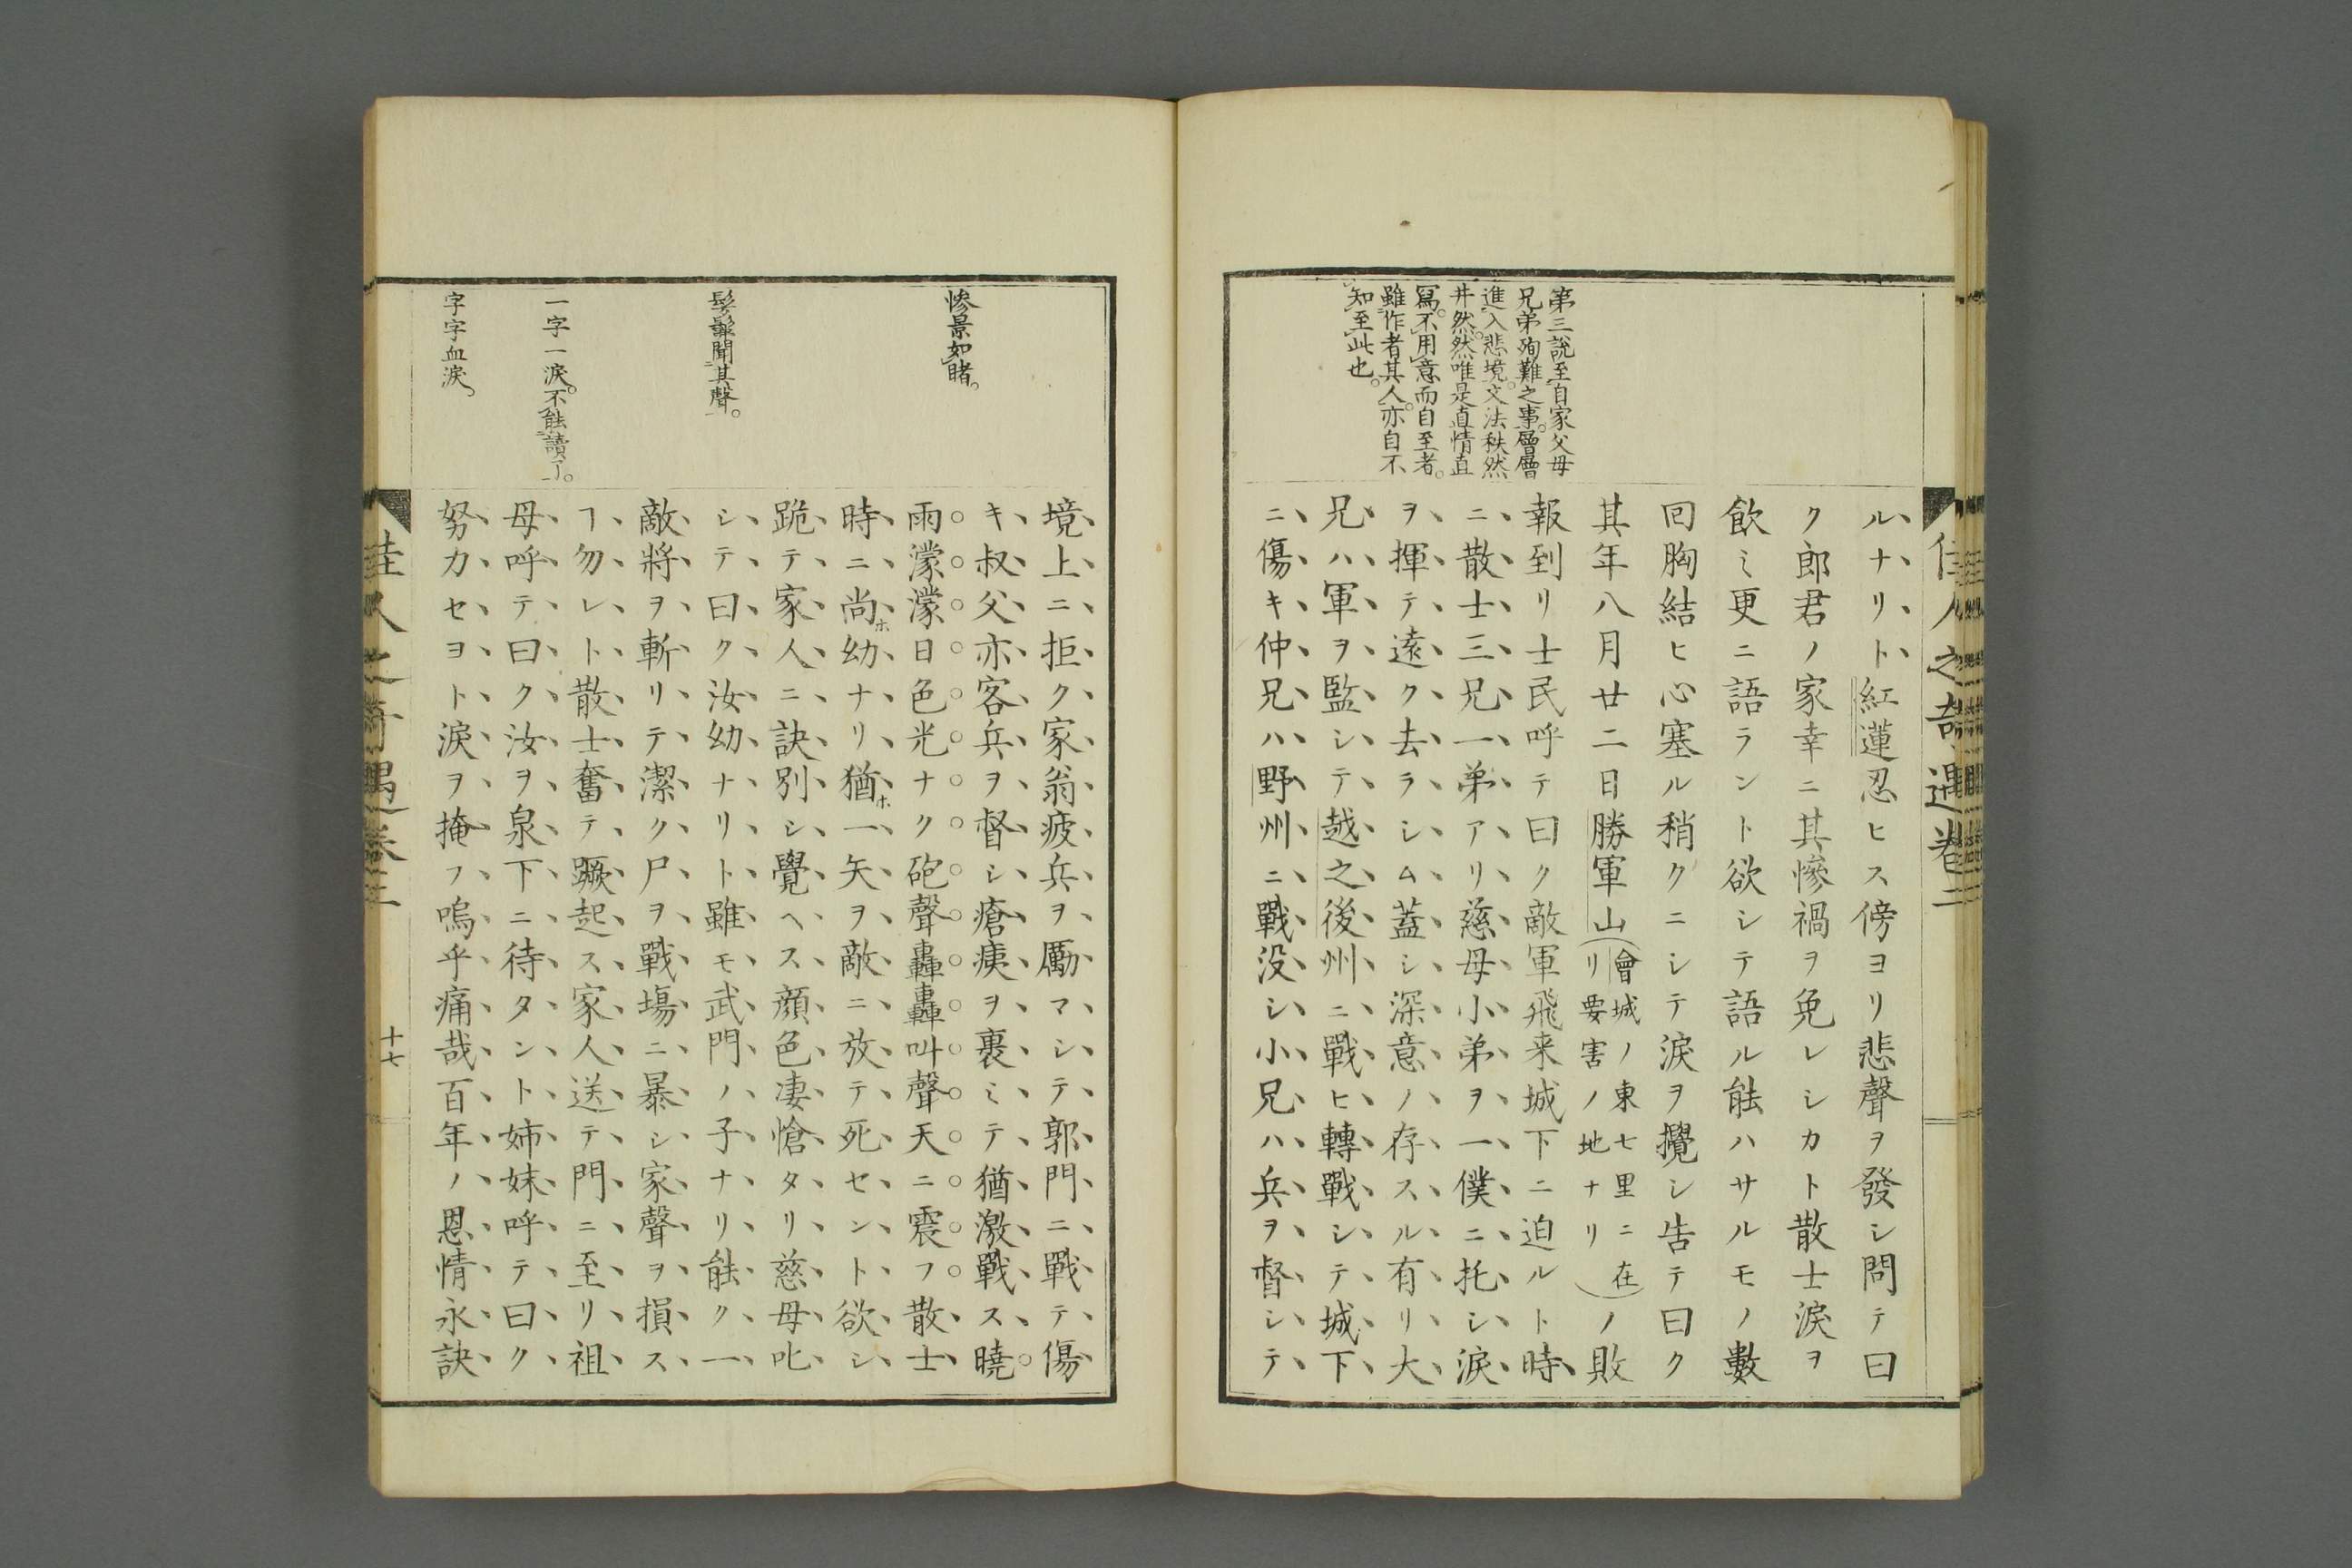 佳人之奇遇卷二
第三說至自家父母
兄弟殉難之事。層層
進入悲境。文法秩然
井然。然唯是直情直
寫。不用意而自至者。
雖作者其人。亦自不
知至此也。
ルナリト紅蓮忍ヒス傍ヨリ悲聲ヲ發シ問テ曰
ク郎君ノ家幸ニ其慘禍ヲ免レシカト散士淚ヲ
飲ミ更ニ語ラント欲シテ語ル能ハサルモノ數
回胸結ヒ心塞ル稍クニシテ淚ヲ攬シ告テ曰ク
其年八月廿二日勝軍山(會城ノ東七里ニ在リ要害ノ地ナリ)ノ敗
報到リ士民呼テ曰ク敵軍飛来城下ニ迫ルト時
ニ散士三兄一弟アリ慈母小弟ヲ一僕ニ托シ淚
ヲ揮テ遠ク去ラシム蓋シ深意ノ存スル有リ大
兄ハ軍ヲ監シテ越之後州ニ戰ヒ轉戰シテ城下
ニ傷キ仲兄ハ野州ニ戰没シ小兄ハ兵ヲ督シテ
慘景如睹。
髣髴聞其聲。
一字一淚。不能讀了。
字字血淚。
境上ニ拒ク家翁疲兵ヲ勵マシテ郭門ニ戰テ傷
キ叔父亦客兵ヲ督シ瘡痍ヲ裹ミテ猶激戰ス曉
雨濛濛日色光ナク砲聲轟轟叫聲天ニ震フ散士
時ニ尚ホ幼ナリ猶ホ一矢ヲ敵ニ放テ死セント欲シ
跪テ家人ニ訣別シ覺ヘス顔色凄愴タリ慈母叱
シテ曰ク汝幼ナリト雖モ武門ノ子ナリ能ク一
敵將ヲ斬リテ潔ク尸ヲ戰塲ニ暴シ家聲ヲ損ス
ヿ勿レト散士奮テ蹶起ス家人送テ門ニ至リ祖
母呼テ曰ク汝ヲ泉下ニ待タント姉妹呼テ曰ク
努力セヨト淚ヲ掩フ嗚乎痛哉百年ノ恩情永訣
佳人之奇遇卷二
十七